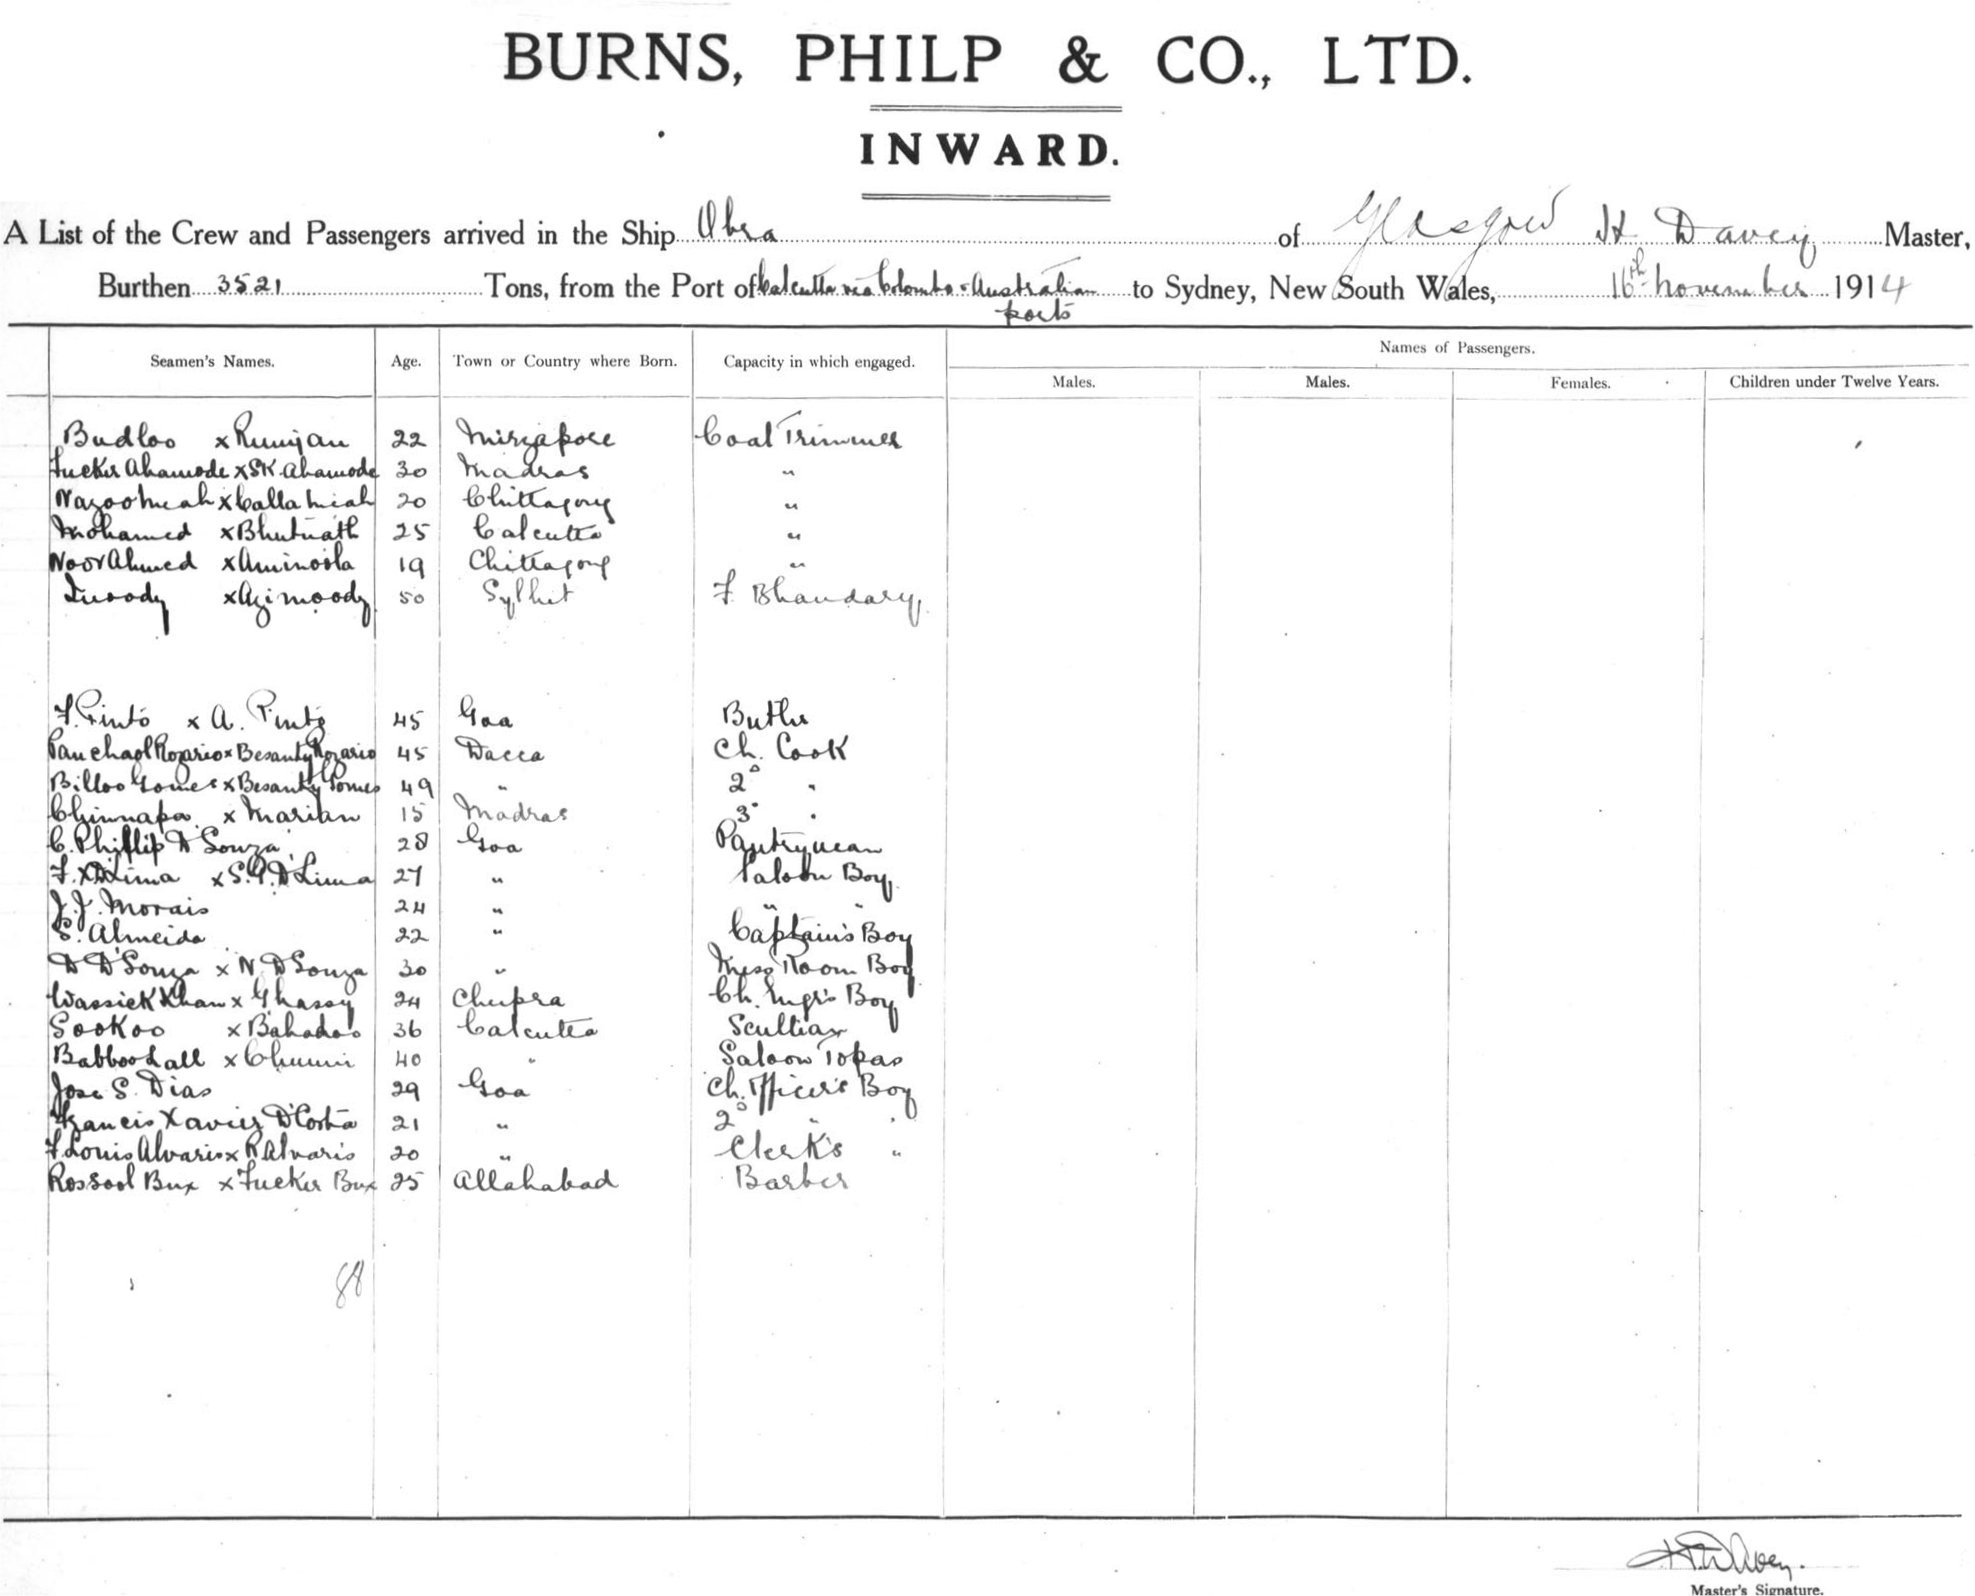 BURNS, PHILP & CO., LTD.
INWARD.
A List of the Crew and Passengers arrived in the Ship Obra of Glasgow H Davey Master,
Burthen 3521 Tons, from the Port of Calcutta via Colombo & Australian ports to Sydney, New South Wales, 16th November 1914
Seamen's Names. Age. Town or Country where Born. Capacity in which engaged. Names of Passengers.
Males. Males. Females. Children under Twelve Years.
Budloo x Rumjan 22 Mirzapore Coal Trimmer
Fucker Ahamode x SK. Ahamode 30 Madras "
Nazoo Meah x Calla Meah 20 Chittagong "
Mohamed x Bhutnath 25 Calcutta "
Noor Ahmed x Aminoola 19 Chittagong "
x Azimoody 50 Sylhet F Bhandary
F. Pinto x A. Pinto 45 Goa Butler
Panchaol Rozario x Besanty Rozario 45 Dacca Ch. Cook
Billoo Gomes x Besanty Gomes 49 " 2° "
Chinnapa x Marian 15 Madras 3° "
C. Phillip D'Souza 28 Goa Pantryman
F. X D'Lima x S. P. D'Lima 27 " Saloon Boy
J. J. Morais 24 " " "
S. Almeida 22 " Captain's Boy
D D'Souza x N. D'Souza 30 " Mess Room Boy
Wassick Khan x Ghassy 24 Chupra Ch. Engr's Boy
Sookoo x Bahadoo 36 Calcutta Scullian
Babboo Lall x Chunni 40 " Saloon Topas
Jose S. Dias 29 Goa Ch. Officer's Boy
Francis Xavier D'Costa 21 " 2° " "
F. Louis Alvaris x R Alvaris 20 " Clerk's "
Rossool Bux x Fucker Bux 25 Allahabad Barber
88
H Davey.
Master's Signature.